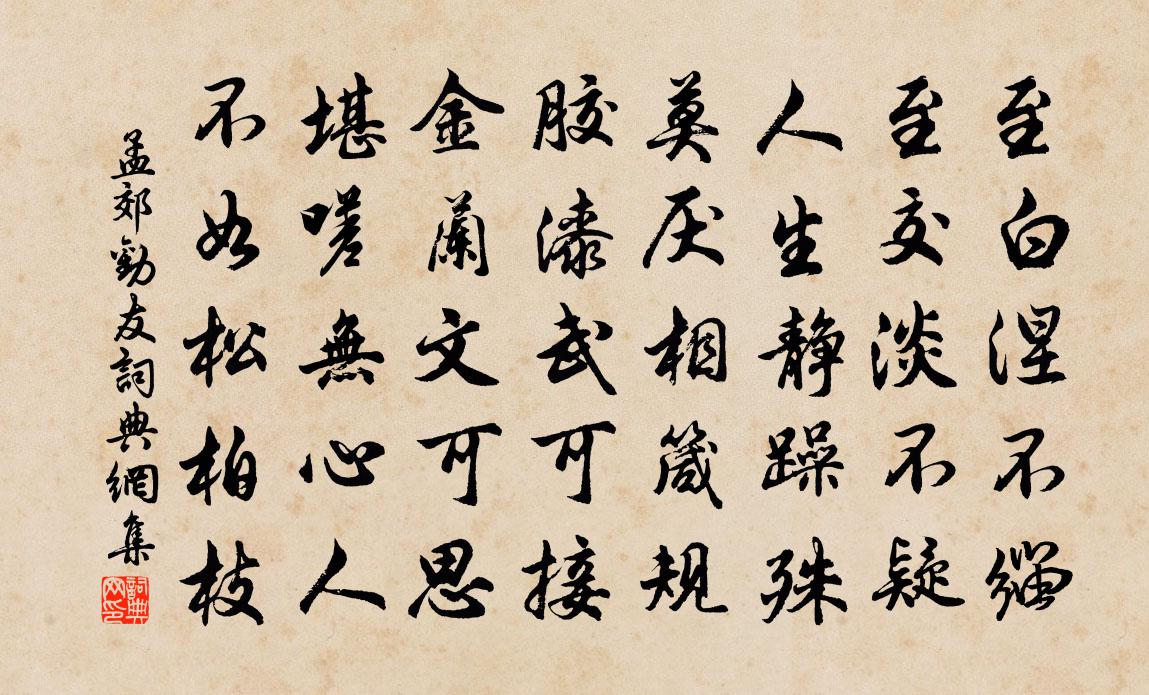 至白涅不緇
至交淡不疑
人生静躁殊
莫厌相箴規
胶漆武可接
金蘭文可思
堪嗟無心人
不如松柏枝
孟郊勸友詞典網集
詞典网印